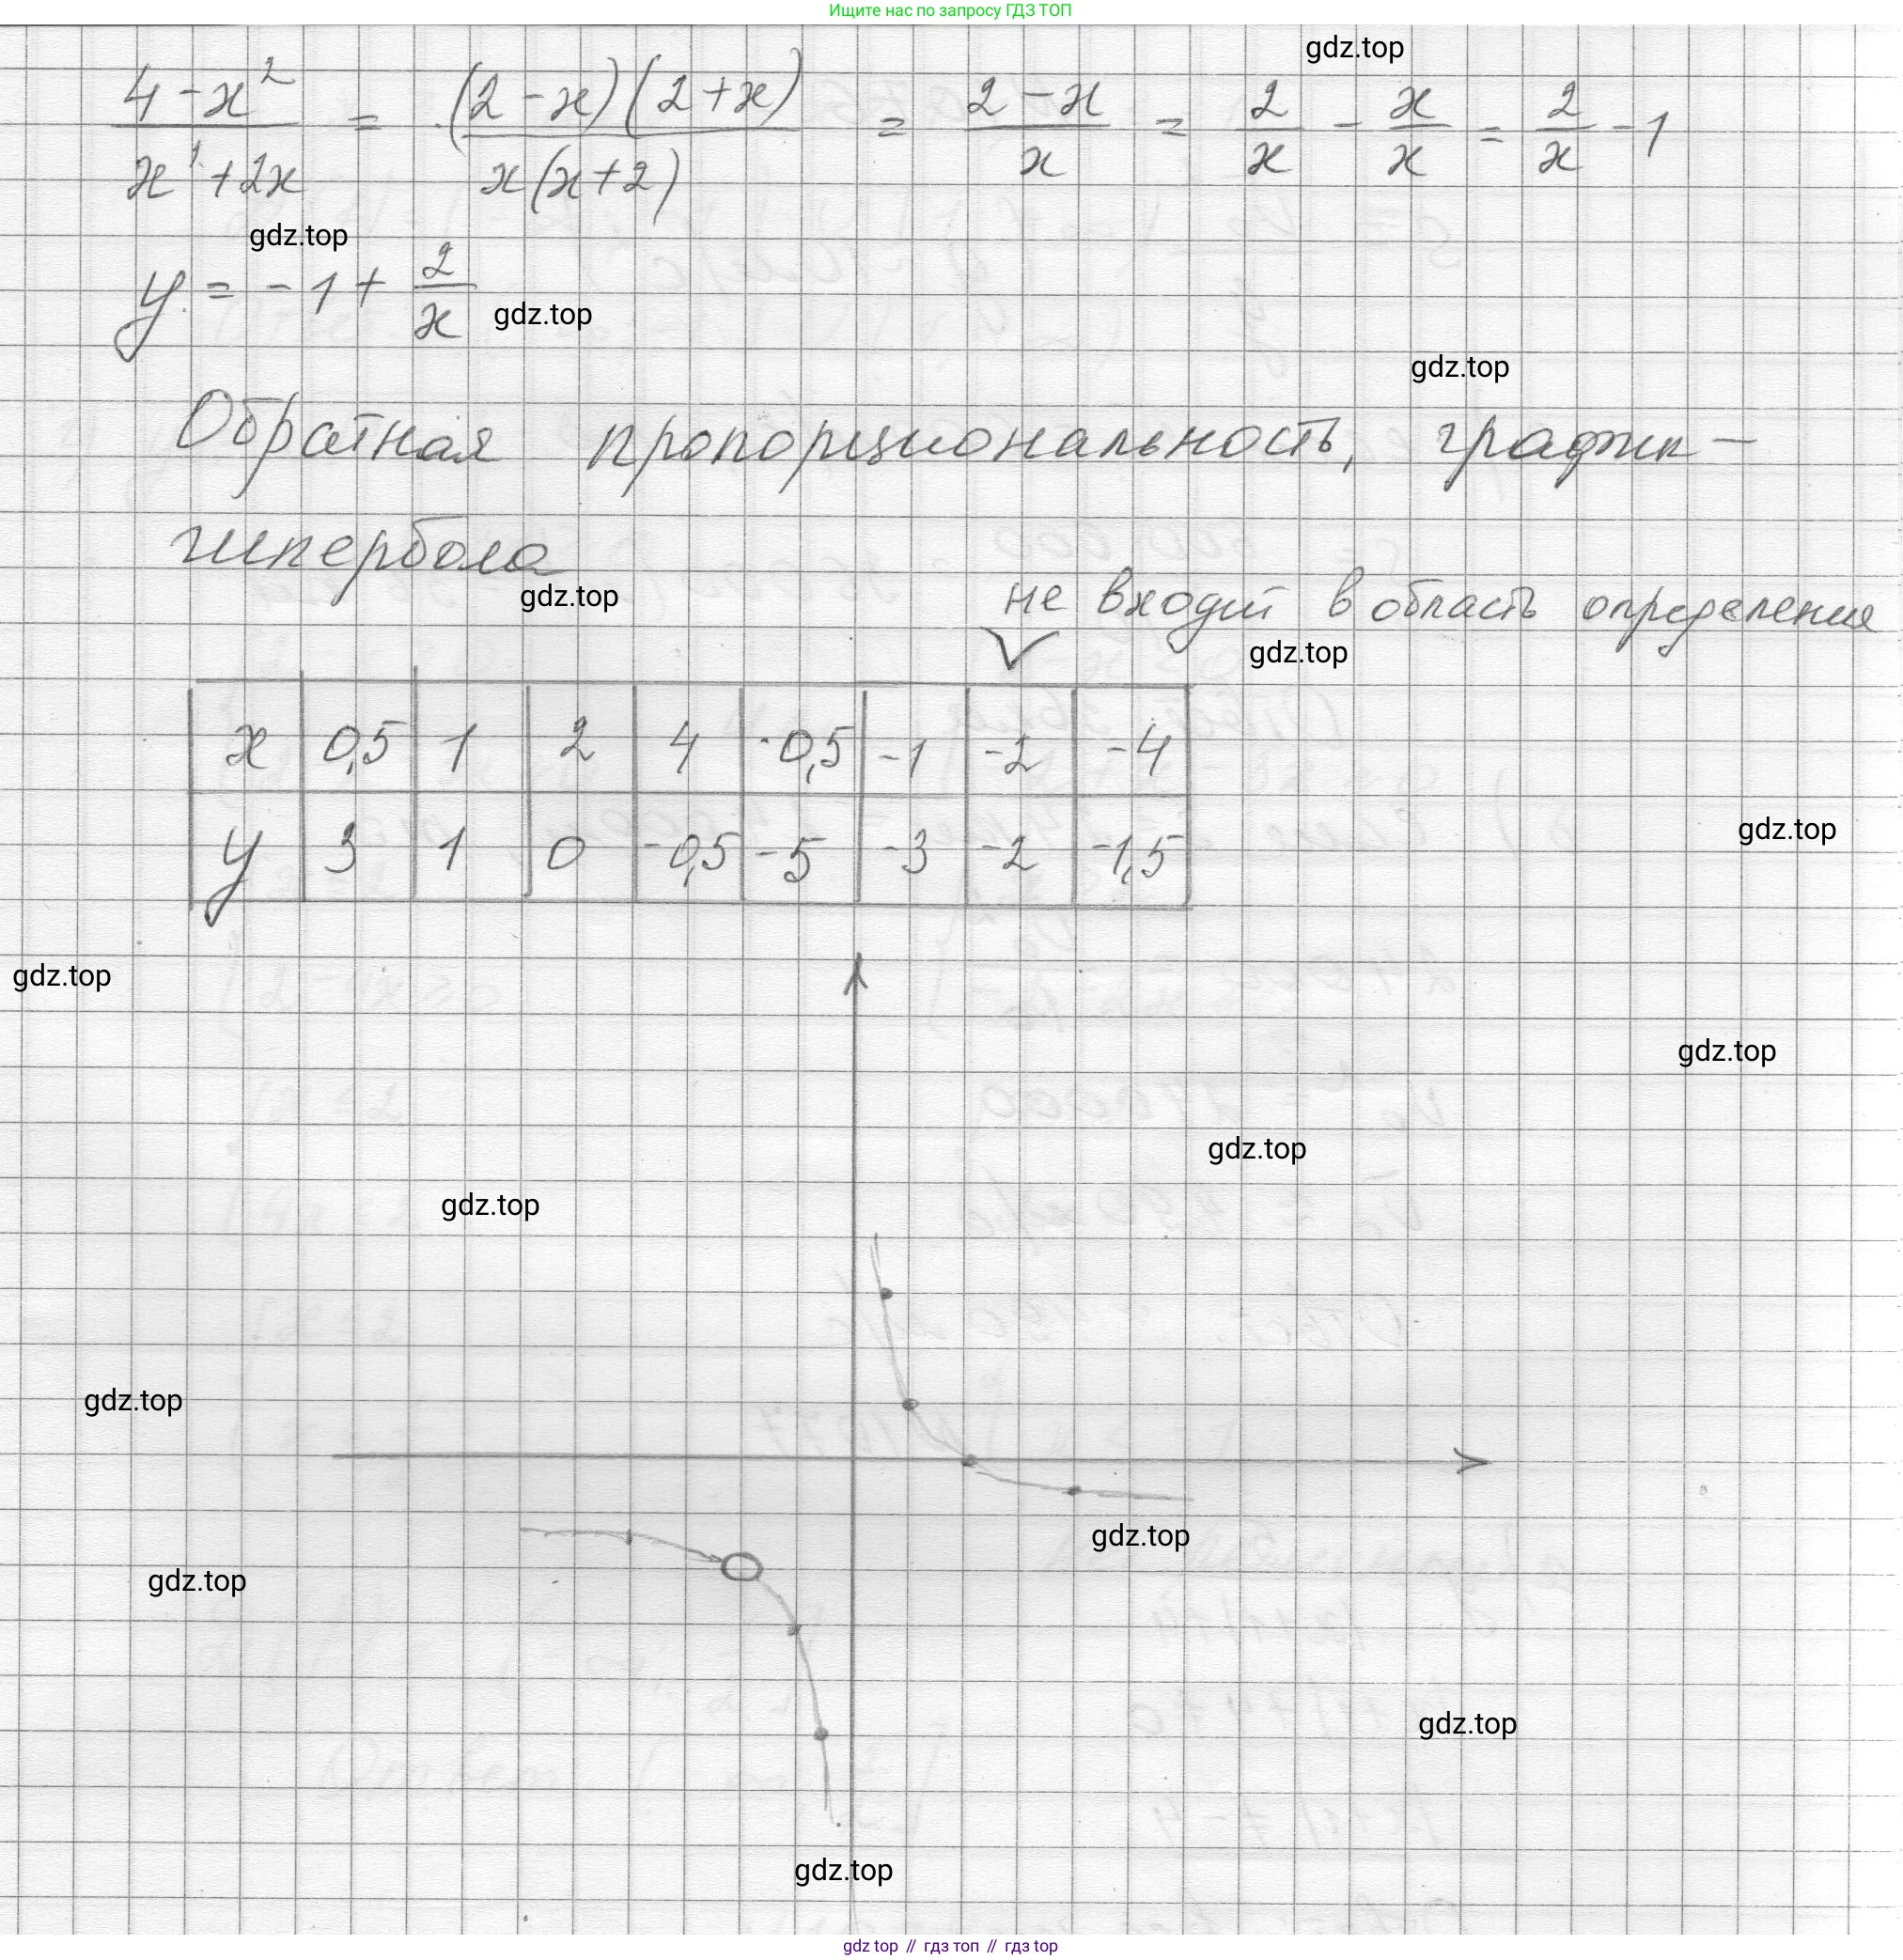 Ищите нас по запросу ГДЗ ТОП
gdz.top
4-x² / x²+2x = (2-x)(2+x) / x(x+2) = 2-x / x = 2/x - x/x = 2/x - 1
gdz.top
y = -1 + 2/x
gdz.top
gdz.top
Обратная пропорциональность, график –
гипербола
gdz.top
не входит в область определения
gdz.top
x 0,5 1 2 4 -0,5 -1 -2 -4
gdz.top
y 3 1 0 -0,5 -5 -3 -2 -1,5
gdz.top
gdz.top
gdz.top
gdz.top
gdz.top
gdz.top
gdz.top
gdz.top
gdz.top
gdz top // гдз топ // гдз top